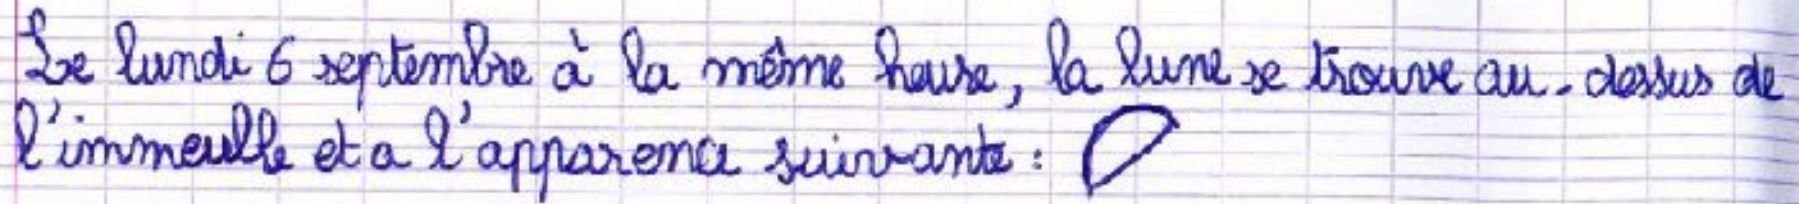 Le lundi 6 septembre à la même heure, la lune se trouve au-dessus de
l'immeuble et a l'apparence suivante :